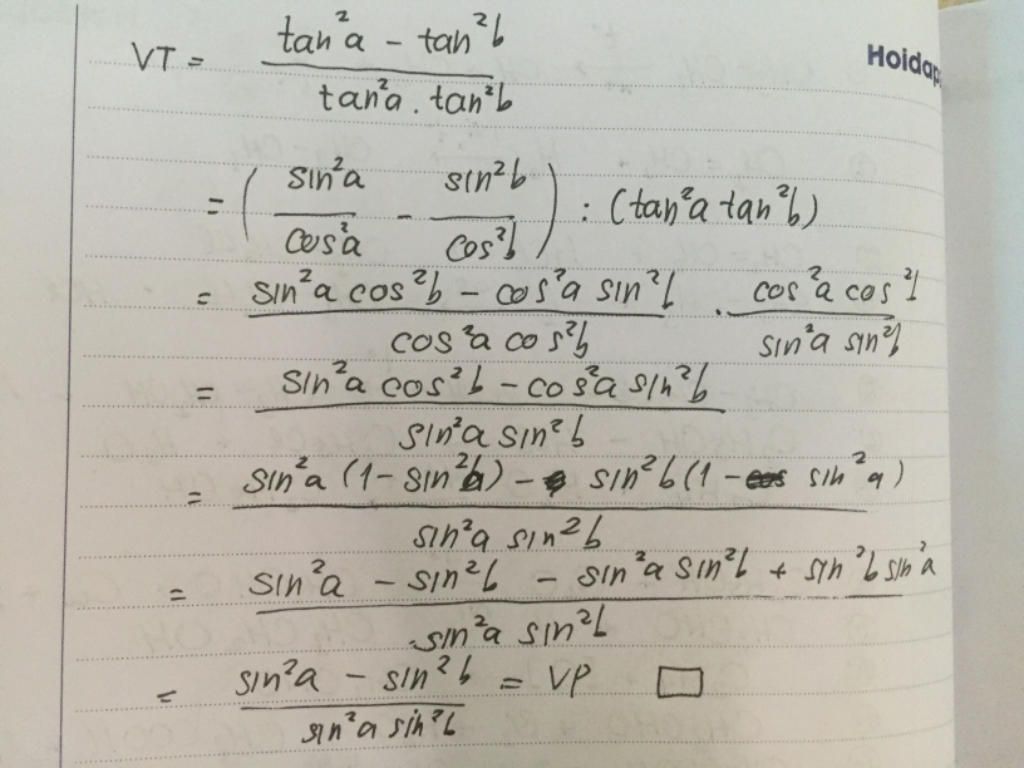 VT = (tan²a − tan²b) / (tan²a . tan²b)
Hoidap
= (sin²a / cos²a − sin²b / cos²b) : (tan²a tan²b)
= (sin²a cos²b − cos²a sin²b) / (cos²a cos²b) . (cos²a cos²b) / (sin²a sin²b)
= (sin²a cos²b − cos²a sin²b) / (sin²a sin²b)
= (sin²a (1 − sin²b) − sin²b (1 − sin²a)) / (sin²a sin²b)
= (sin²a − sin²b − sin²a sin²b + sin²b sin²a) / (sin²a sin²b)
= (sin²a − sin²b) / (sin²a sin²b) = VP □